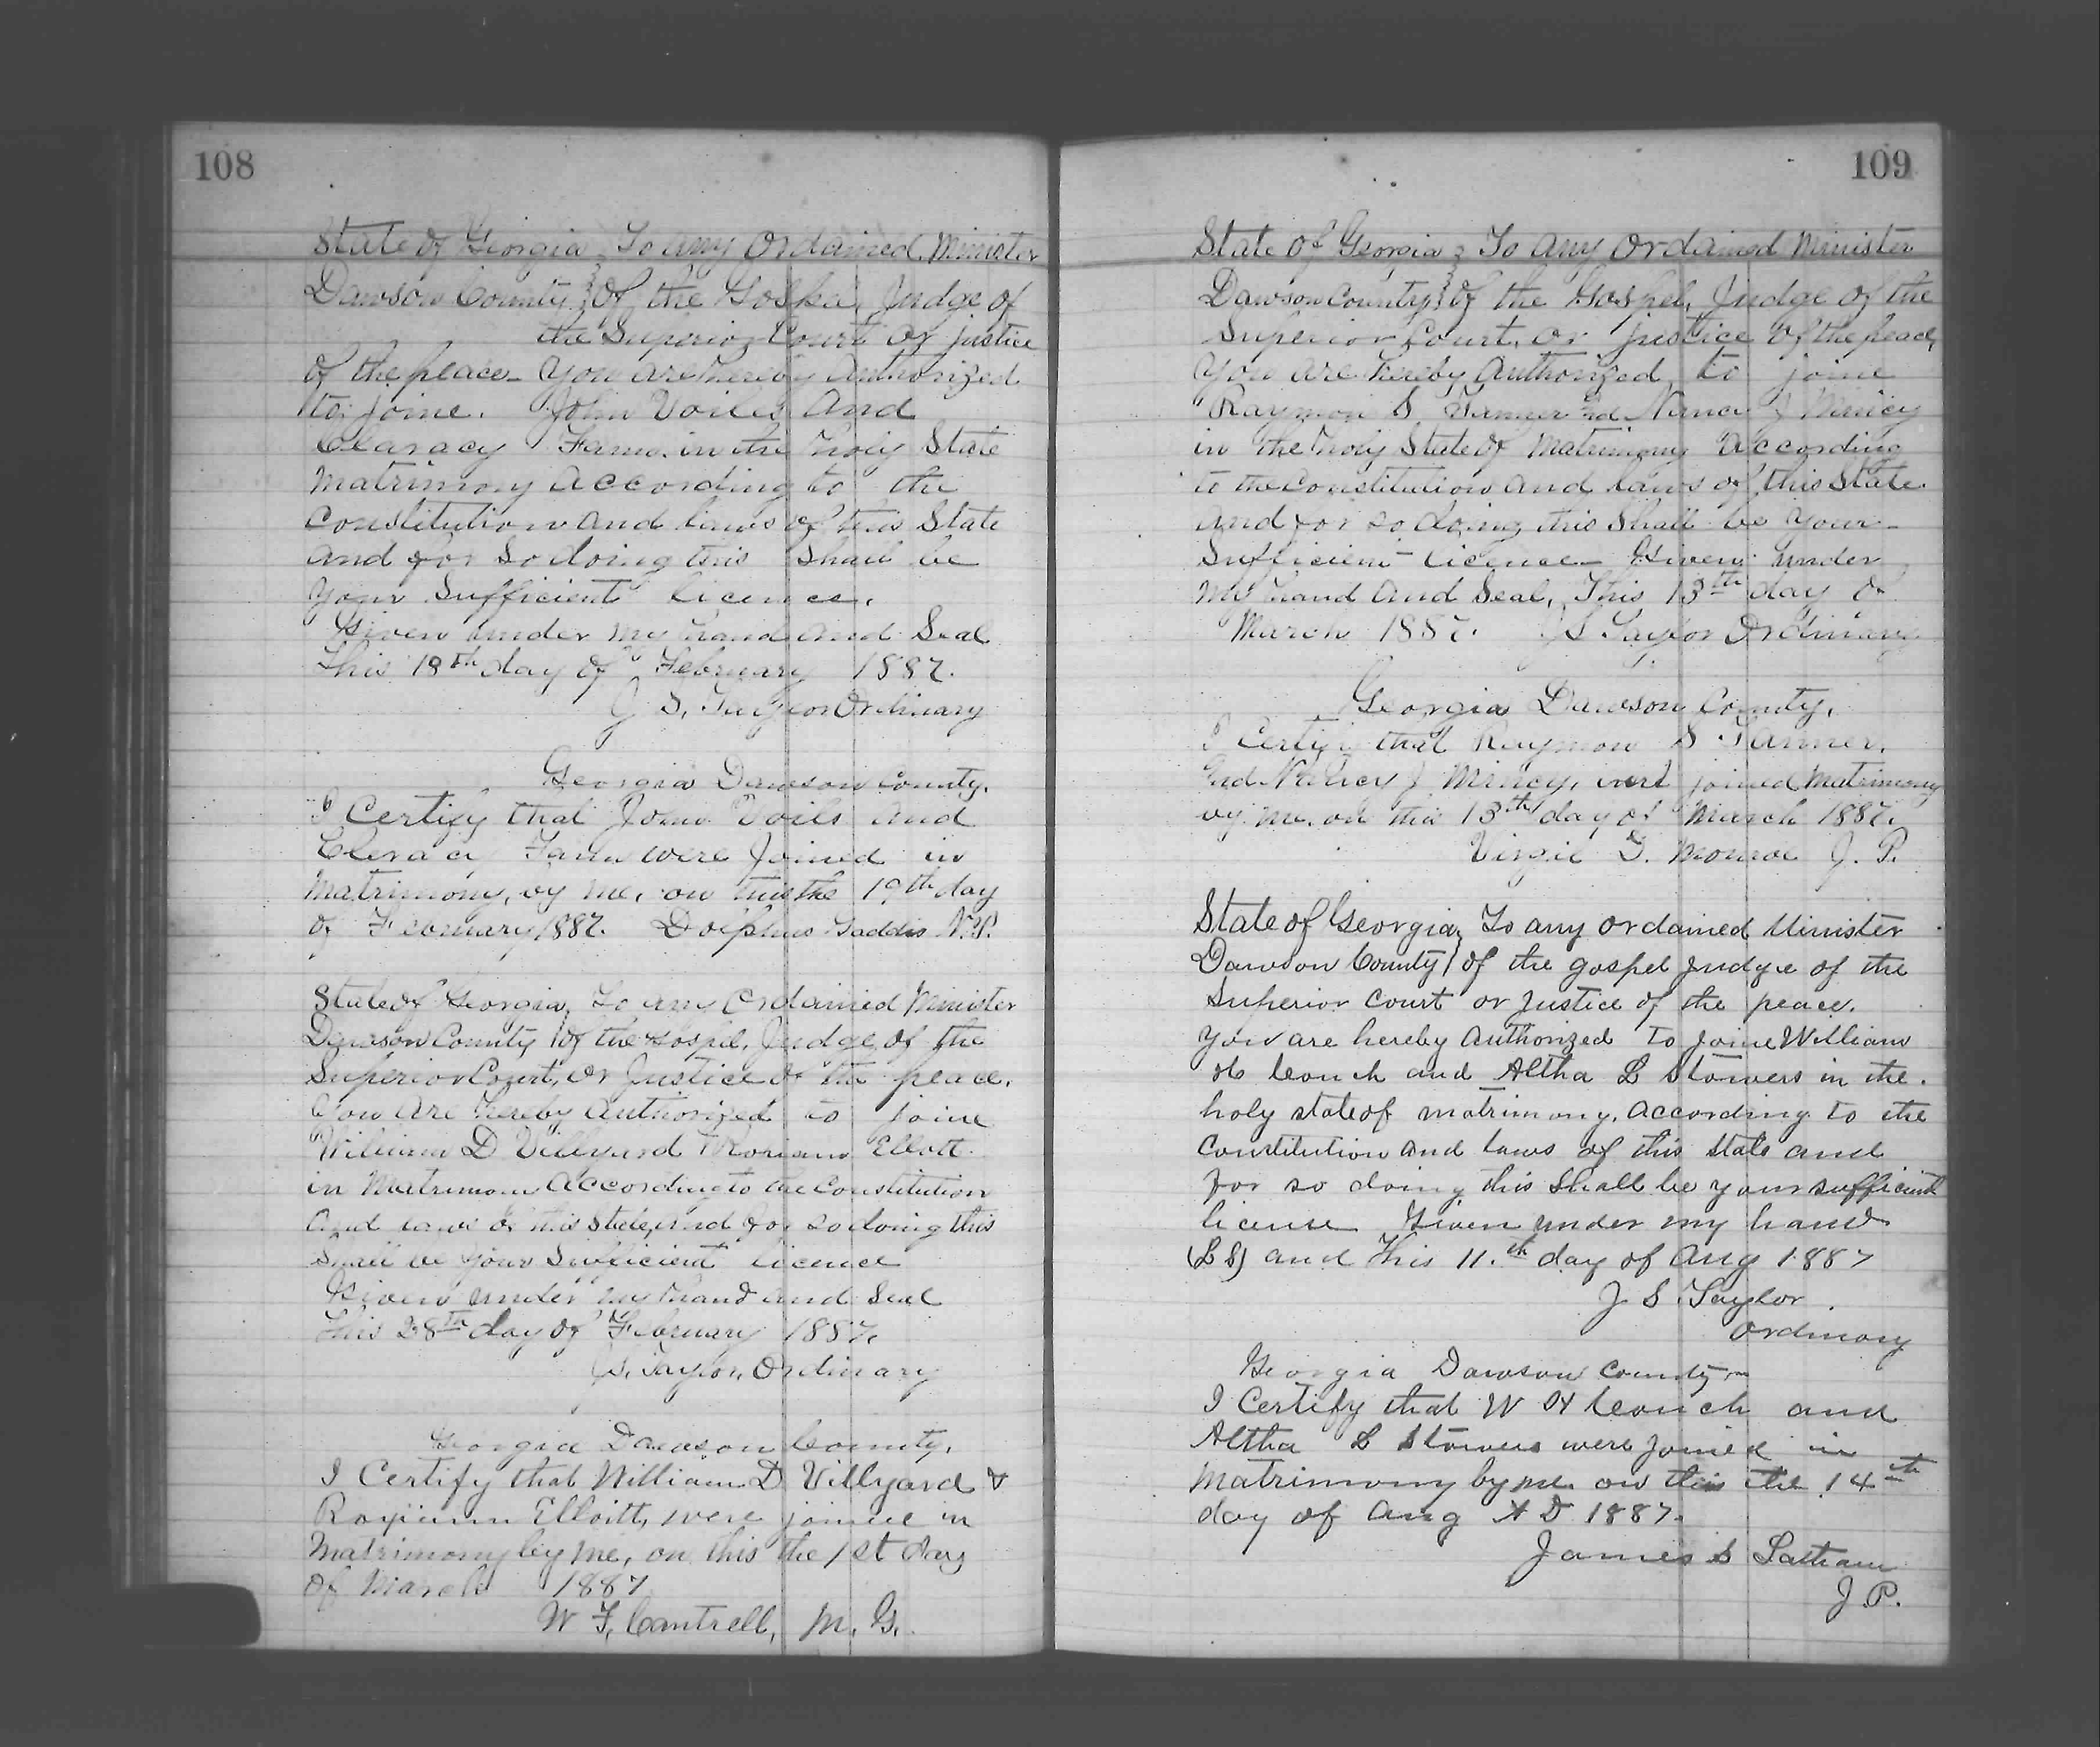 108
State of Georgia } To any Ordained Minister
Dawson County } of the Gospel, Judge of
the Superior Court or justice
of the peace- You are hereby Authorized
to joine. John Voiles and
Claracy in the holy State
matrimony according to the
constitution and laws of this State
and for so doing this shall be
your Sufficient licence.
Given under my hand and Seal
this 18th day of February 1887.
J S, Taylor Ordinary
Georgia Dawson County.
I Certify that John Voils and
were joined in
matrimony, by me, on this the 19th day
of February 1887. Dolphus Gaddis N.P.
State of Georgia, To any Ordained Minister
Dawson County } of the Gospel, Judge of the
Superior Court, or Justice of the peace.
You are hereby authorized to joine
William D Villyard & Ellott
in Matrimony According to the Constitution
and laws of this State, and for so doing this
shall be your Sufficient licence
Given under my hand and Seal
this 28th day of February 1887.
J S. Taylor, Ordinary
Georgia Dawson County.
I Certify that William D Villyard &
Elloitt, were joined in
Matrimony by me, on this the 1st day
of March 1887
W F, Cantrell, M. G.
109
State of Georgia } To any Ordained Minister
Dawson County } of the Gospel, Judge of the
Superior Court, or justice of the peace,
You are hereby Authorized to joine
Raymon S Tanner and Nancy J Mincy
in the holy State of Matrimony According
to the Constitution and laws of this State
and for so doing this Shall be your-
Sufficient- licence- Given under
my hand and Seal, This 13th day of
March 1887. J S Taylor Ordinary
Georgia Dawson County,
I Certify that Raymon S Tanner,
and Nancy J Mincy, were joined matrimony
by me, on this 13th day of March 1887.
Virgil D. Monroe J. P.
State of Georgia } To any ordained Minister
Dawson County } of the gospel judge of the
Superior Court or Justice of the peace.
You are hereby authorized to joine William
H Couch and Altha L Stowers in the.
holy state of matrimony. according to the
Constitution and laws of this State and
for so doing this shall be your sufficient
license Given under my hand
(L S) and this 11.th day of Aug 1887
J S Taylor.
Ordinary
Georgia Dawson County
I Certify that W H Couch and
Altha L Stowers were joined in
Matrimony by me on this the 14th
day of Aug A D 1887.
James S Latham
J.P.